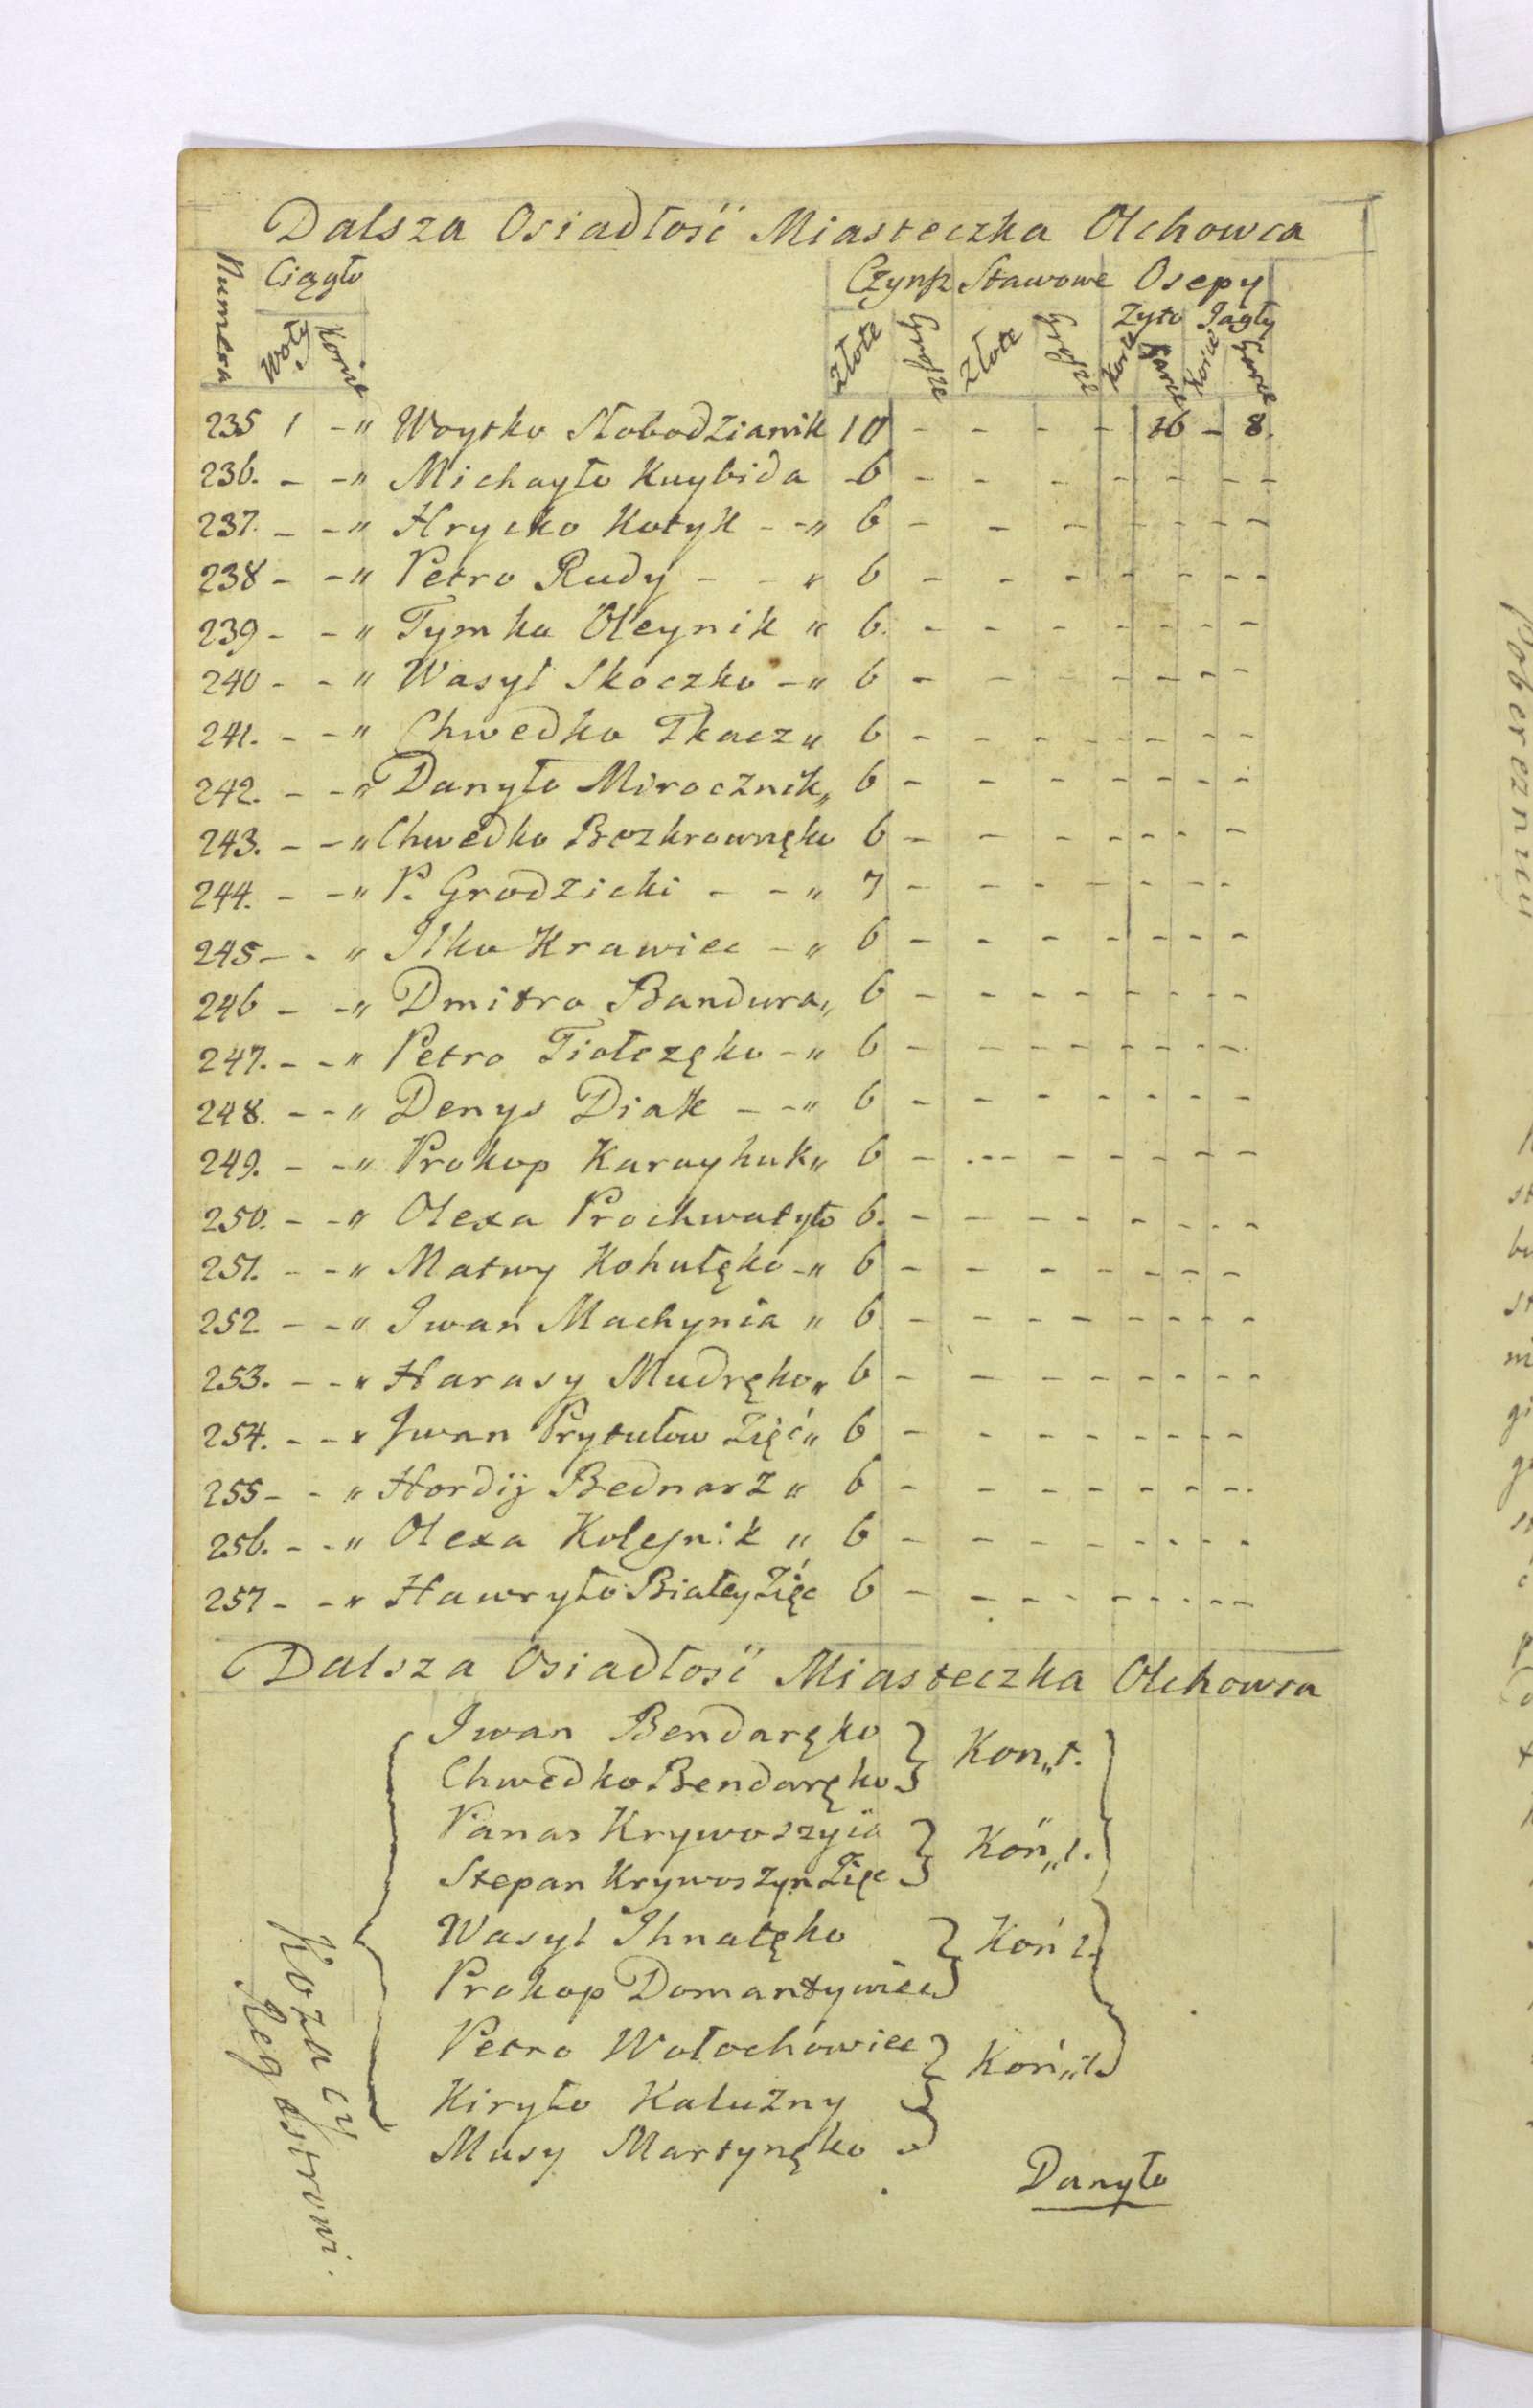 Dalsza Osiadłość Miasteczka Olchowca
Numera Ciągło Czynsz Stawowe Osepy
Woły Konie Złote Grosze Złote Grosze Zyto Jagły
Korce Garce Korce Garce
235 1 - " Woytko Słobodzianik 10 - - - - 16 - 8.
236. - - " Michayło Kuybida - 6 - - - - - - -
237. - - " Hrycko Kotyk - - " 6 - - - - - - -
238 - - " Petro Rudy - - " 6 - - - - - - -
239 - - " Tymko Oleynik " 6. - - - - - - -
240 - - " Wasyl Skoczko - " 6 - - - - - - -
241. - - " Chwedko Tkacz " 6 - - - - - - -
242. - - " Danyło Mirocznik " 6 - - - - - - -
243. - - " Chwedko Bezkrownęko 6 - - - - - - -
244. - - " P. Grodzicki - - " 7 - - - - - - -
245 - - " Ilko Krawiec - " 6 - - - - - - -
246 - - " Dmitro Bandura " 6 - - - - - - -
247. - - " Petro Tiołczęko - " 6 - - - - - - -
248. - - " Denys Diak - - " 6 - - - - - - -
249. - - " Prokop Karayhuk " 6 - - - - - - -
250. - - " Olexa Prochwatyło 6. - - - - - - -
251. - - " Matwy Kohutęko - " 6 - - - - - - -
252 - - " Iwan Machynia " 6. - - - - - - -
253. - - " Harasy Mudręko " 6 - - - - - - -
254. - - " Iwan Prytułow Zięć " 6 - - - - - - -
255 - - " Hordij Bednarz " 6 - - - - - - -
256. - - " Olexa Kolejnik " 6 - - - - - - -
257 - - " Hawryło Białey Zięc 6 - - - - - - -
Dalsza Osiadłość Miasteczka Olchowca
Kozacy Regestrowi.
Iwan Bendaręko
Chwedko Bendaręko } Kon „ 1.
Panas Krywoszyia
Stepan Krywoszyn Zięc } Koń „ 1.
Wasyl Ihnatęko
Prokop Domantywiec } Koń 1.
Petro Wołochówiec
Kiryło Kalużny } Koń „ 1.
Musy Martynęko
Danyło